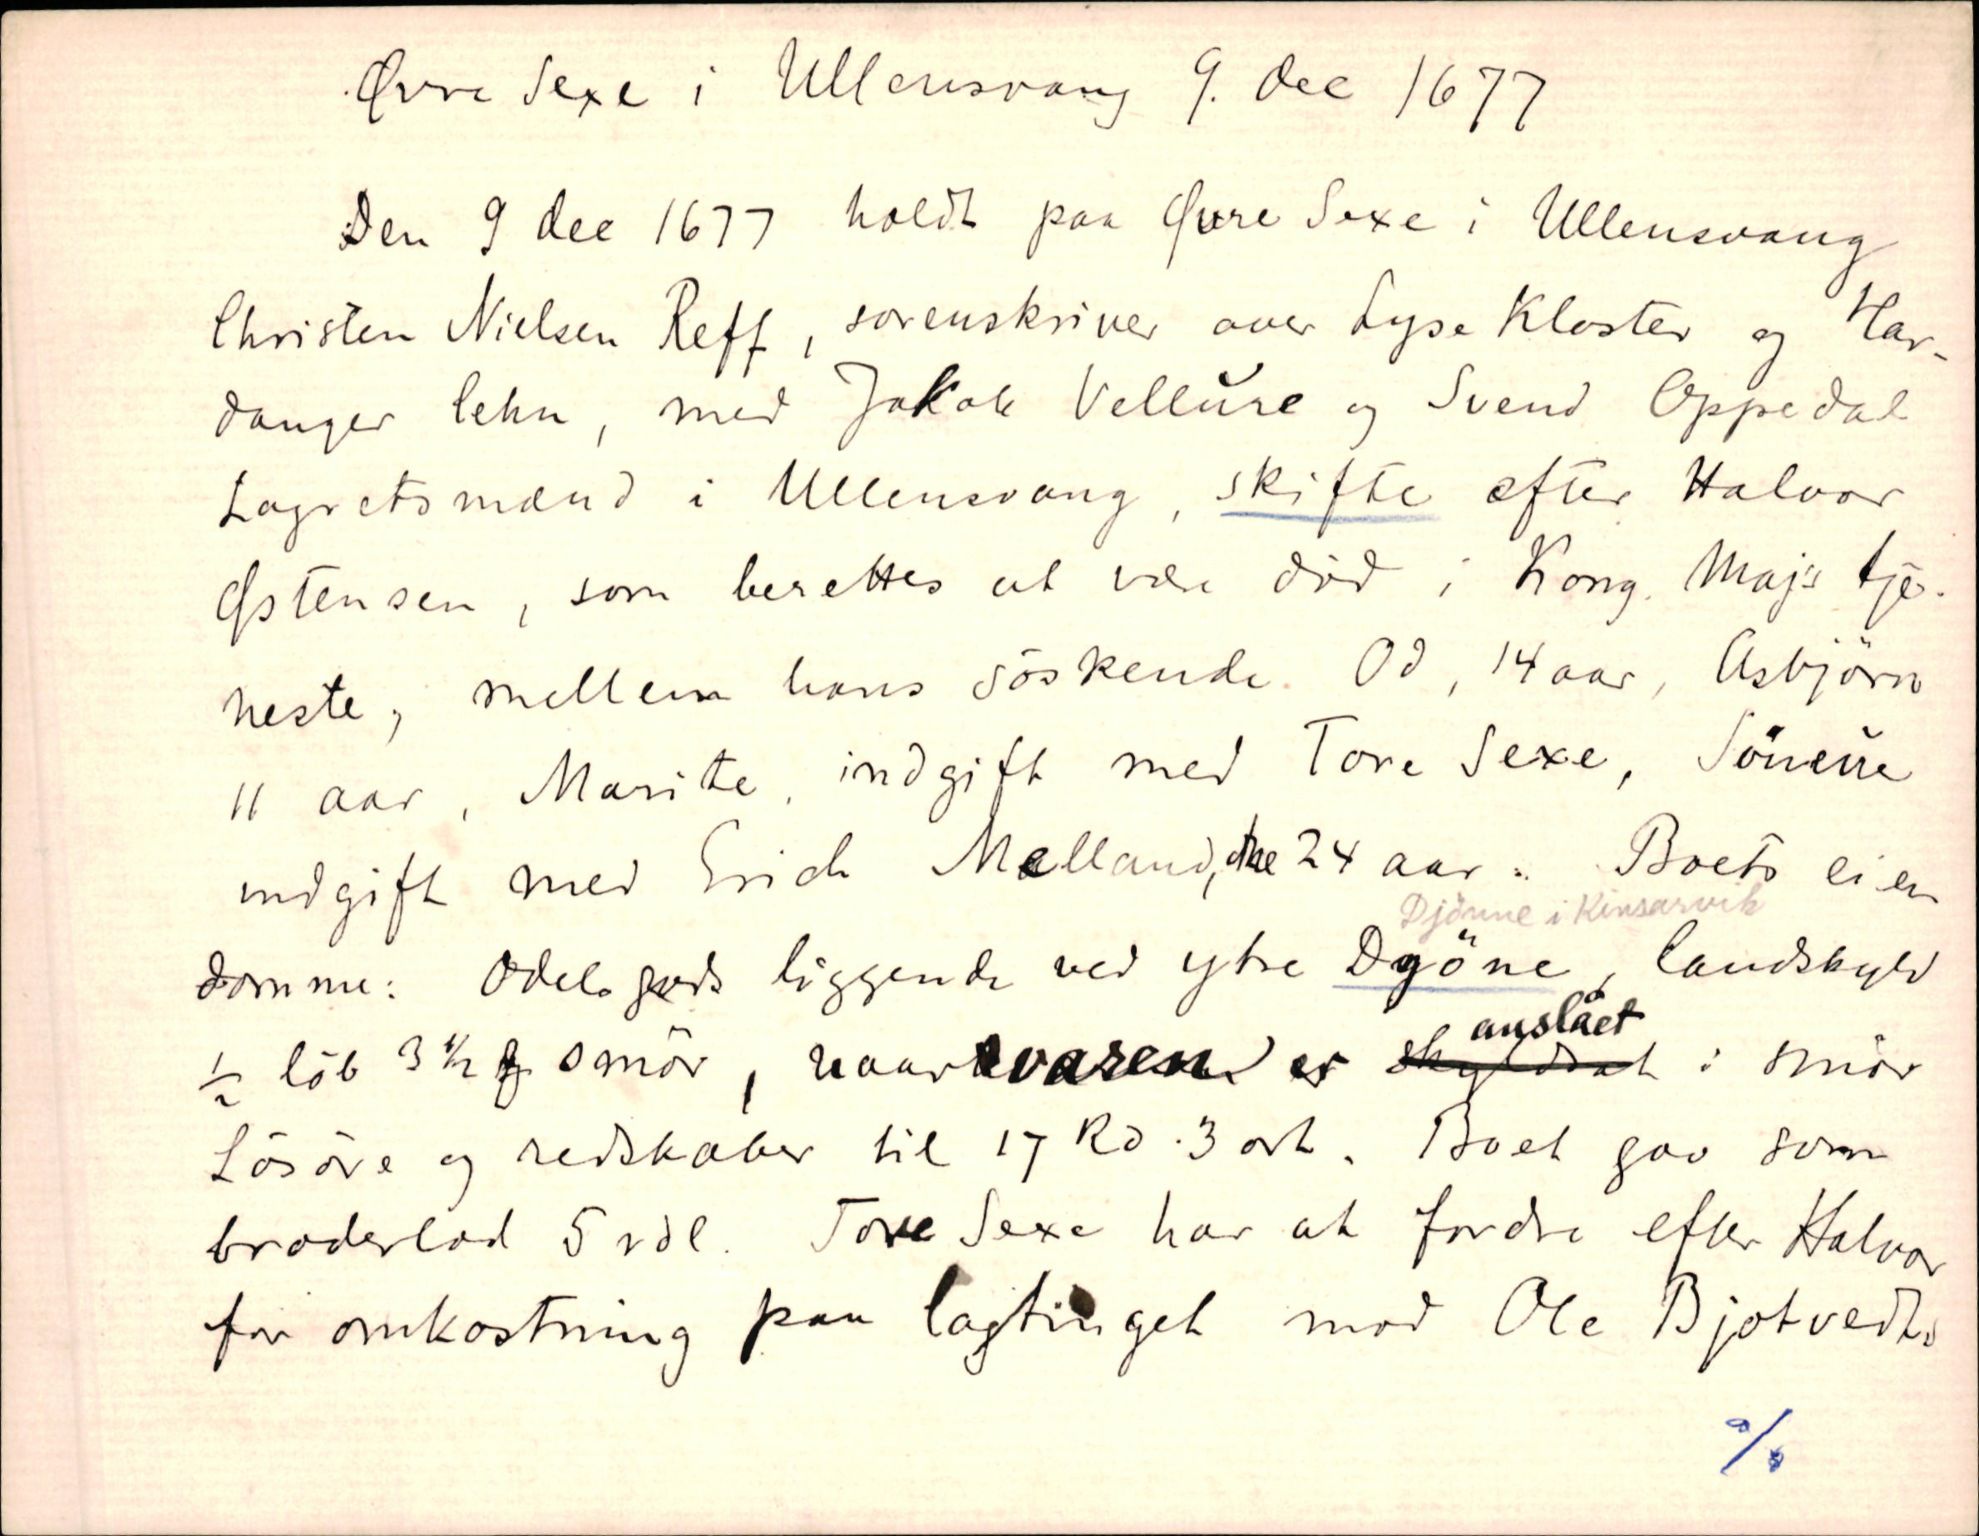 Øvre Sexe i Ullensvang 9. dec 1677
Den 9 dec 1677 holdt paa Øvre Sexe i Ullensvang
Christen Nielsen Reff, sorenskriver over Lyse Kloster og Har-
danger lehn, med Jakob Vellure og Svend Oppedal
Lagretsmænd i Ullensvang, skifte efter Halvor
Østensen, som berettes at være död i Kong. Maj's tje-
neste, mellem hans söskende Od, 14 aar, Asbjörn
11 aar, Marite, indgift med Tore Sexe, Söneue
indgift med Erich Melland, 24 aar. Boets eien
Djönne i Kinsarvik
domme: Odelsgods liggende ved ytre Dgöne, landskyld
anslået
½ löb 3 ½ smör, naar varen er skyldsat i smör
Lösöre og redskaber til 17 Rd. 3 ort. Boet gav som
broderlod 5 rdl. Tore Sexe har at fordre efter Halvor
for omkostning paa lagtinget mod Ole Bjotvedt.
%